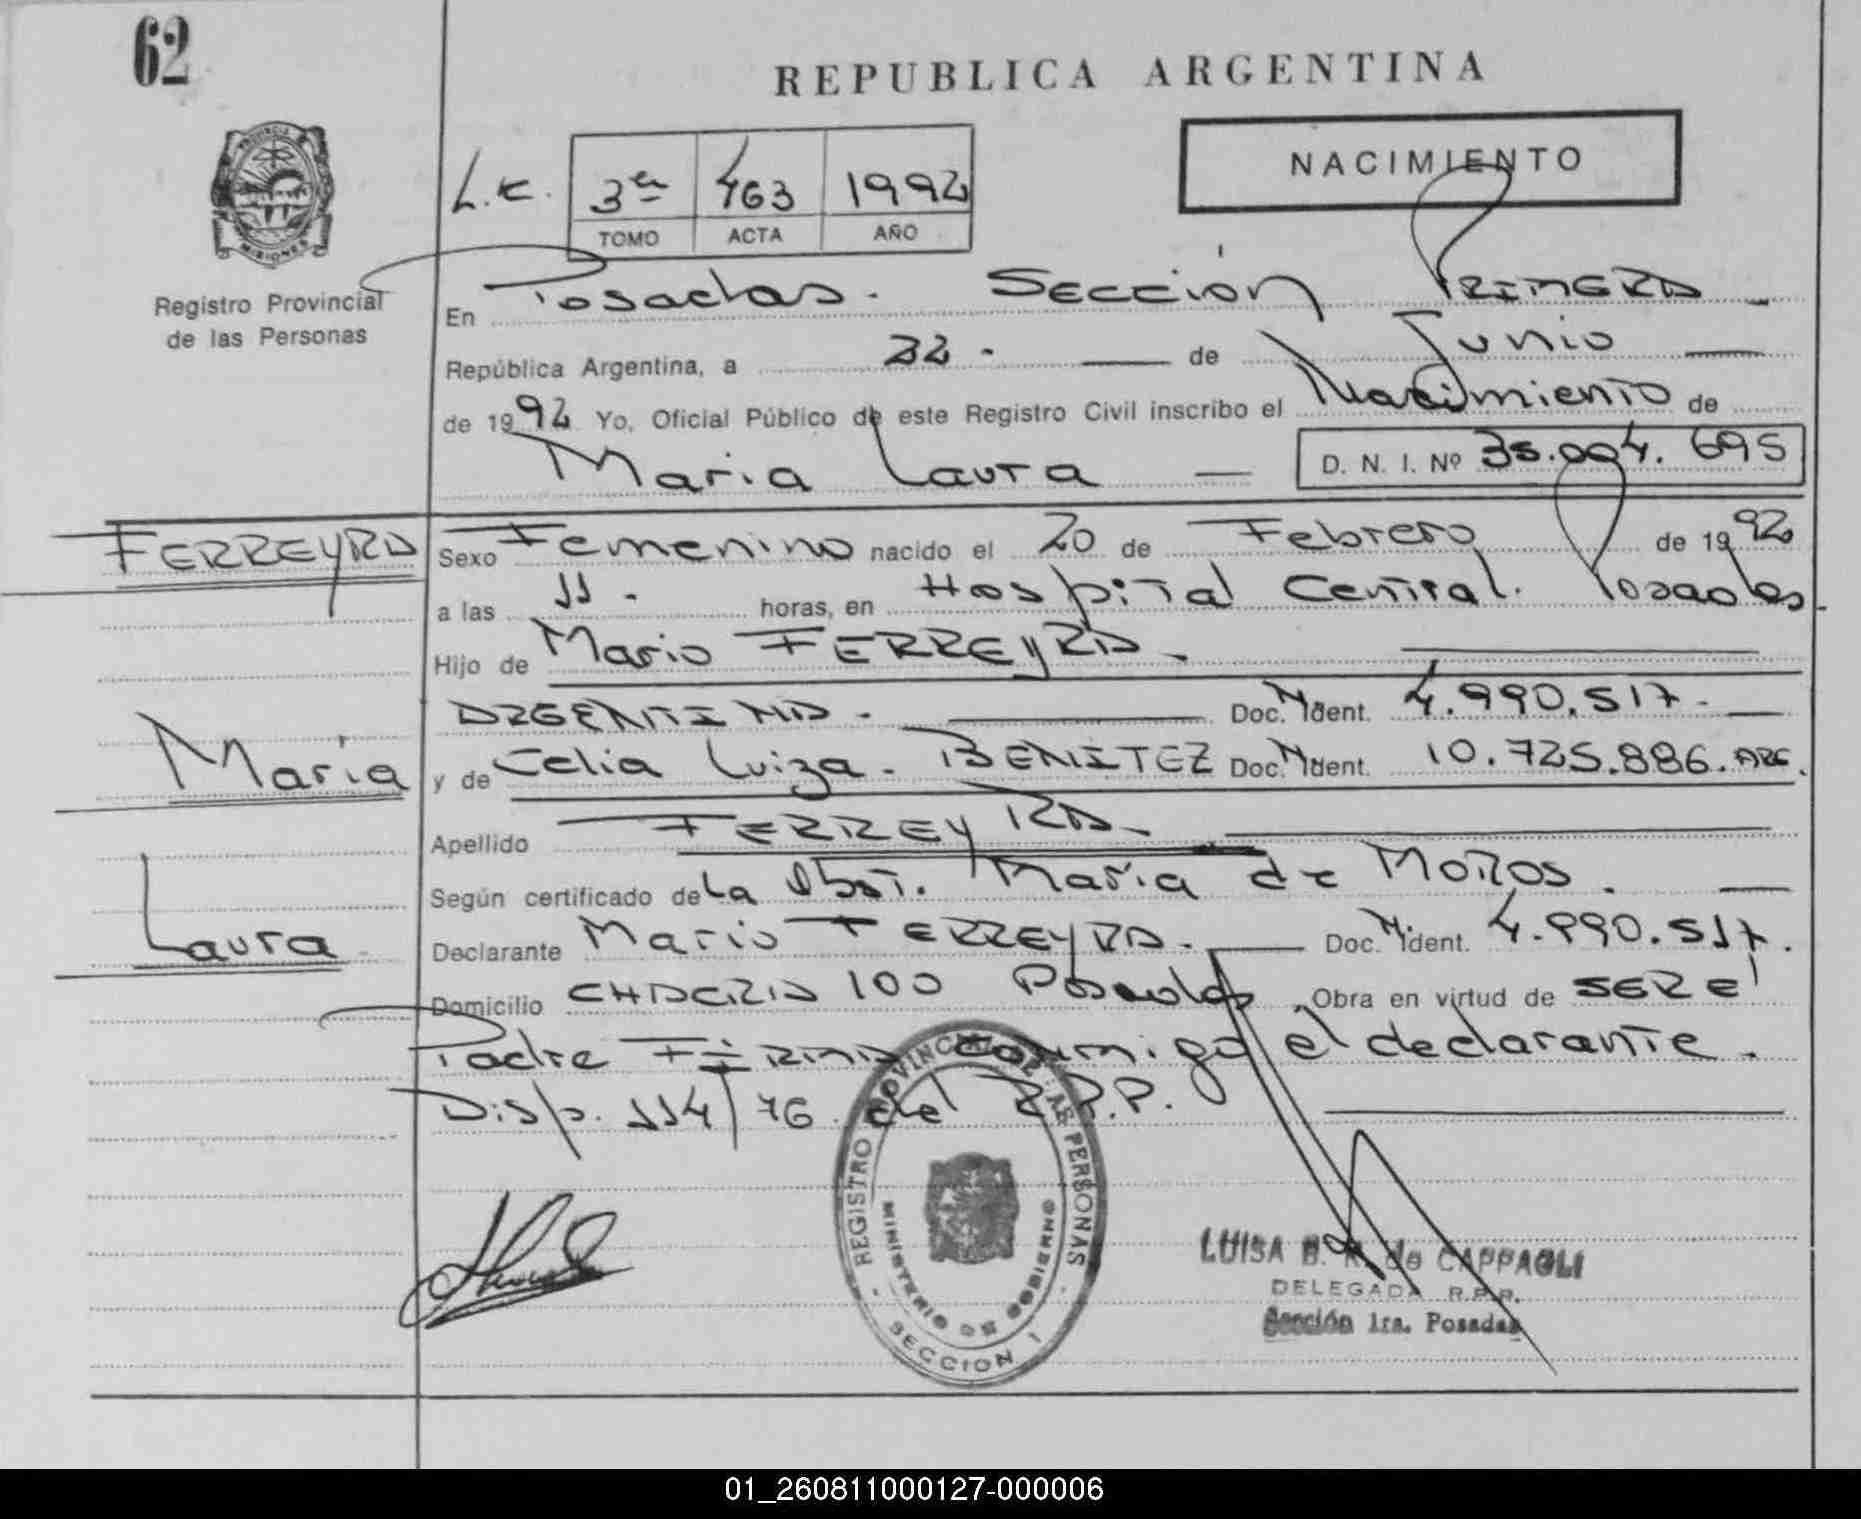 62
REPUBLICA ARGENTINA
NACIMIENTO
PROVINCIA
MISIONES
Registro Provincial
de las Personas
L.E. 3er 463 1992
TOMO ACTA AÑO
En Posadas. Sección PRIMERA
República Argentina, a 22. de Junio
de 1992 Yo, Oficial Público de este Registro Civil inscribo el Nacimiento de
Maria Laura D. N. I. Nº 35.004.695
FERREYRA
Sexo Femenino nacido el 20 de Febrero de 1992
a las 11. horas, en Hospital Central. Posadas
Hijo de Mario FERREYRA.
ARGENTINA. Doc. N Ident. 4.990.517.
Maria
y de Celia Luiza. BENITEZ Doc. N Ident. 10.725.886. ARG.
Apellido FERREYRA.
Según certificado de La Obst. Maria de MOROS.
Laura
Declarante Mario FERREYRA. Doc. N ident. 4.990.517.
Domicilio CHACRA 100 Posadas Obra en virtud de SER el
Padre FIRMA conmigo el declarante.
Disp. 114/76 del R.P.P.
REGISTRO PROVINCIAL DE LAS PERSONAS
MINISTERIO DE GOBIERNO
SECCION 1
LUISA B. R. de CAPPAGLI
DELEGADA R.P.P.
Sección 1ra. Posadas
01_260811000127-000006